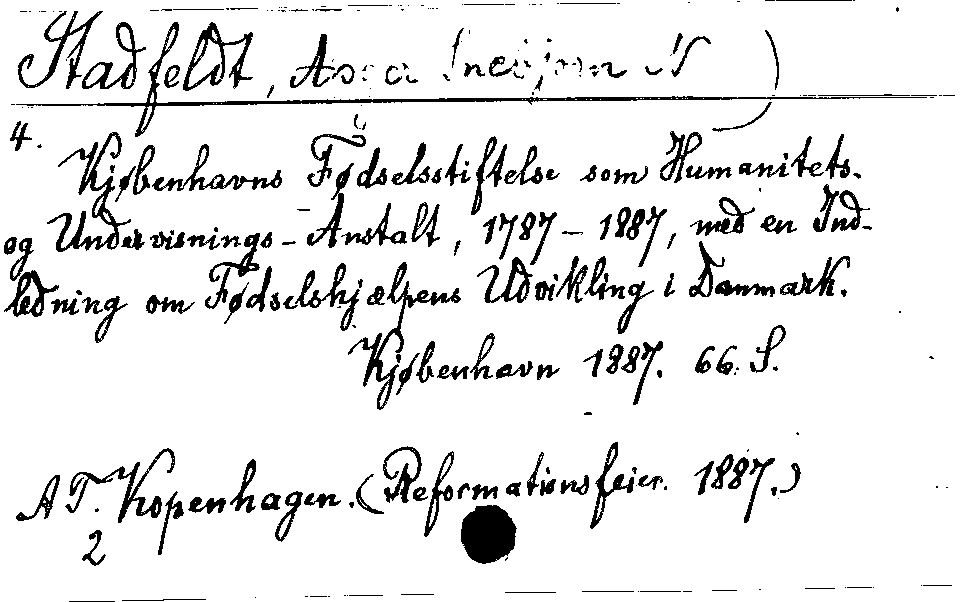 Stadfeldt, Asger Snebjørn N)
4.
Kjøbenhavns Fødselsstiftelse som Humanitets-
og Undervisnings-Anstalt, 1787-1887, med en Ind-
ledning om Fødselshjælpens Udvikling i Danmark.
Kjøbenhavn 1887. 66. S.
AT. Kopenhagen. (Reformationsfeier. 1887.)
2